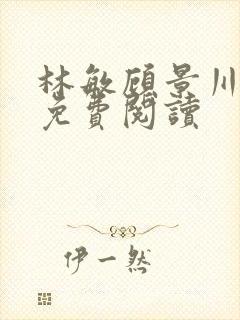 林敏顾景川
免費閱讀
伊一然